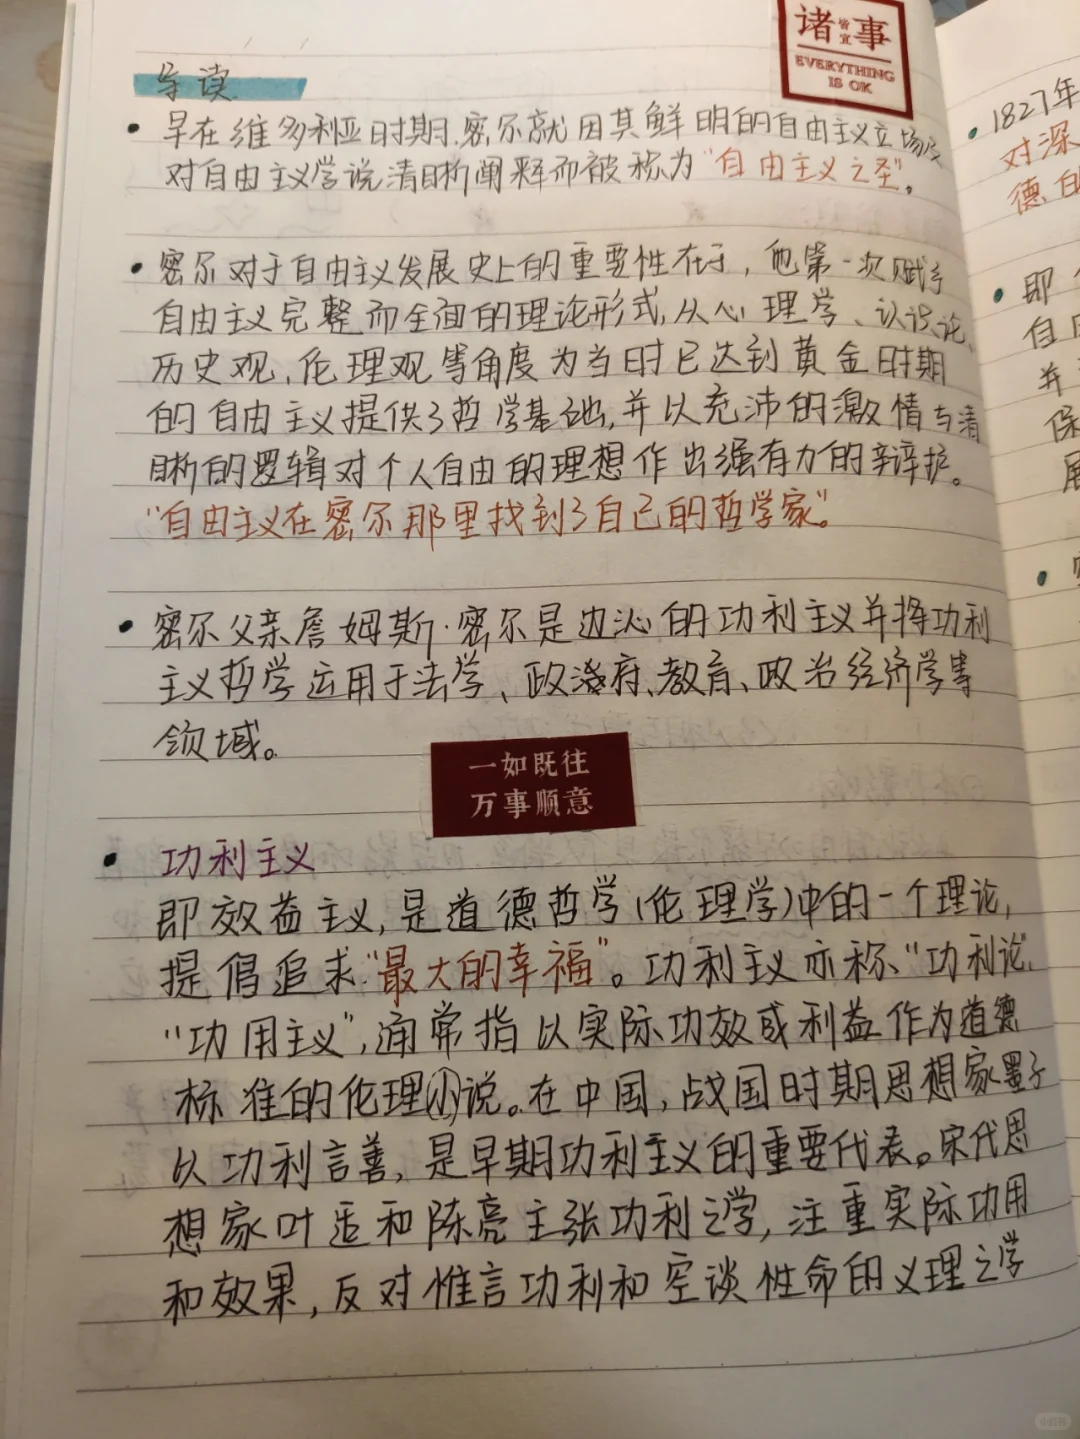 诸事
皆宜
EVERYTHING
IS OK
导读
• 早在维多利亚时期.密尔就因其鲜明的自由主义立场及
对自由主义学说清晰阐释而被称为“自由主义之圣”。
• 密尔对于自由主义发展史上的重要性在于，他第一次赋予
自由主义完整而全面的理论形式,从心理学、认识论、
历史观、伦理观等角度为当时已达到黄金时期
的自由主义提供了哲学基础,并以充沛的激情与清
晰的逻辑对个人自由的理想作出强有力的辩护。
“自由主义在密尔那里找到了自己的哲学家”。
• 密尔父亲詹姆斯·密尔是边沁的功利主义并将功利
主义哲学运用于法学、政府、教育、政治经济学等
领域。
一如既往
万事顺意
• 功利主义
即效益主义,是道德哲学(伦理学)中的一个理论,
提倡追求“最大的幸福”。功利主义亦称“功利论”
“功用主义”,通常指以实际功效或利益作为道德
标准的伦理学说。在中国,战国时期思想家墨子
以功利言善,是早期功利主义的重要代表。宋代思
想家叶适和陈亮主张功利之学,注重实际功用
和效果,反对惟言功利和空谈性命的义理之学
• 1827年
对深
德的
• 即
自由
并
保
展
小红书